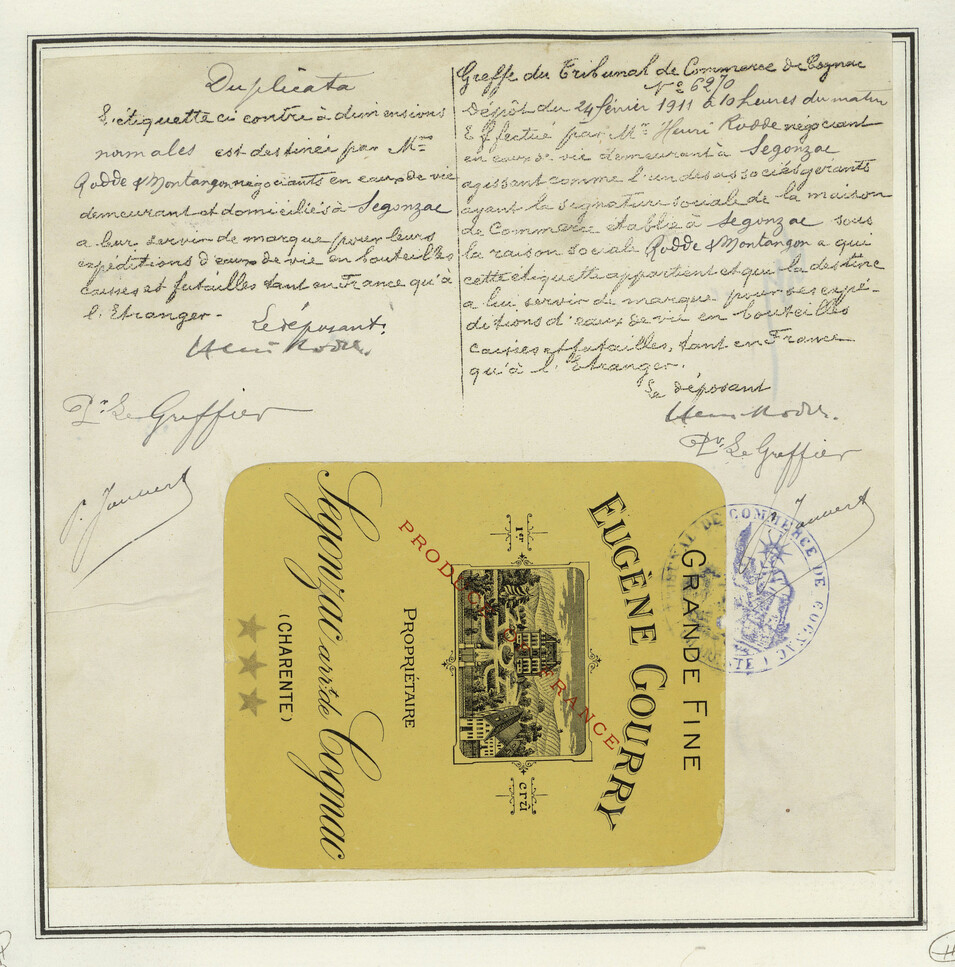 Duplicata
L'étiquette ci contre à dimensions
normales est destinée par Mrs
Rodde & Montangon négociants en eaux de vie
demeurant et domiciliés à Segonzac
a leur servir de marque pour leurs
expéditions d'eaux de vie en bouteilles
caisses et futailles tant en France qu'à
l'Etranger.
Le déposant.
Henri Rodde.
Pr Le Greffier
P. Jauvert
Greffe du Tribunal de Commerce de Cognac
No 6270
Dépôt du 24 février 1911 à 10 heures du matin
Effectué par Mr Henri Rodde négociant
en eaux de vie demeurant à Segonzac
agissant comme l'un des associés gérants
ayant la signature sociale de la maison
de Commerce établie à Segonzac sous
la raison sociale Rodde & Montangon a qui
cette étiquette appartient et qui la destine
a lui servir de marque pour ses expé-
ditions d'eaux de vie en bouteilles
caisses et futailles, tant en France
qu'à l'Etranger.
Le déposant
Henri Rodde.
Pr Le Greffier
Jauvert
TRIBUNAL DE COMMERCE DE COGNAC
GRANDE FINE
EUGÈNE GOURRY
1er crû
PRODUCE OF FRANCE
PROPRIÉTAIRE
Segonzac arrt de Cognac
(CHARENTE)